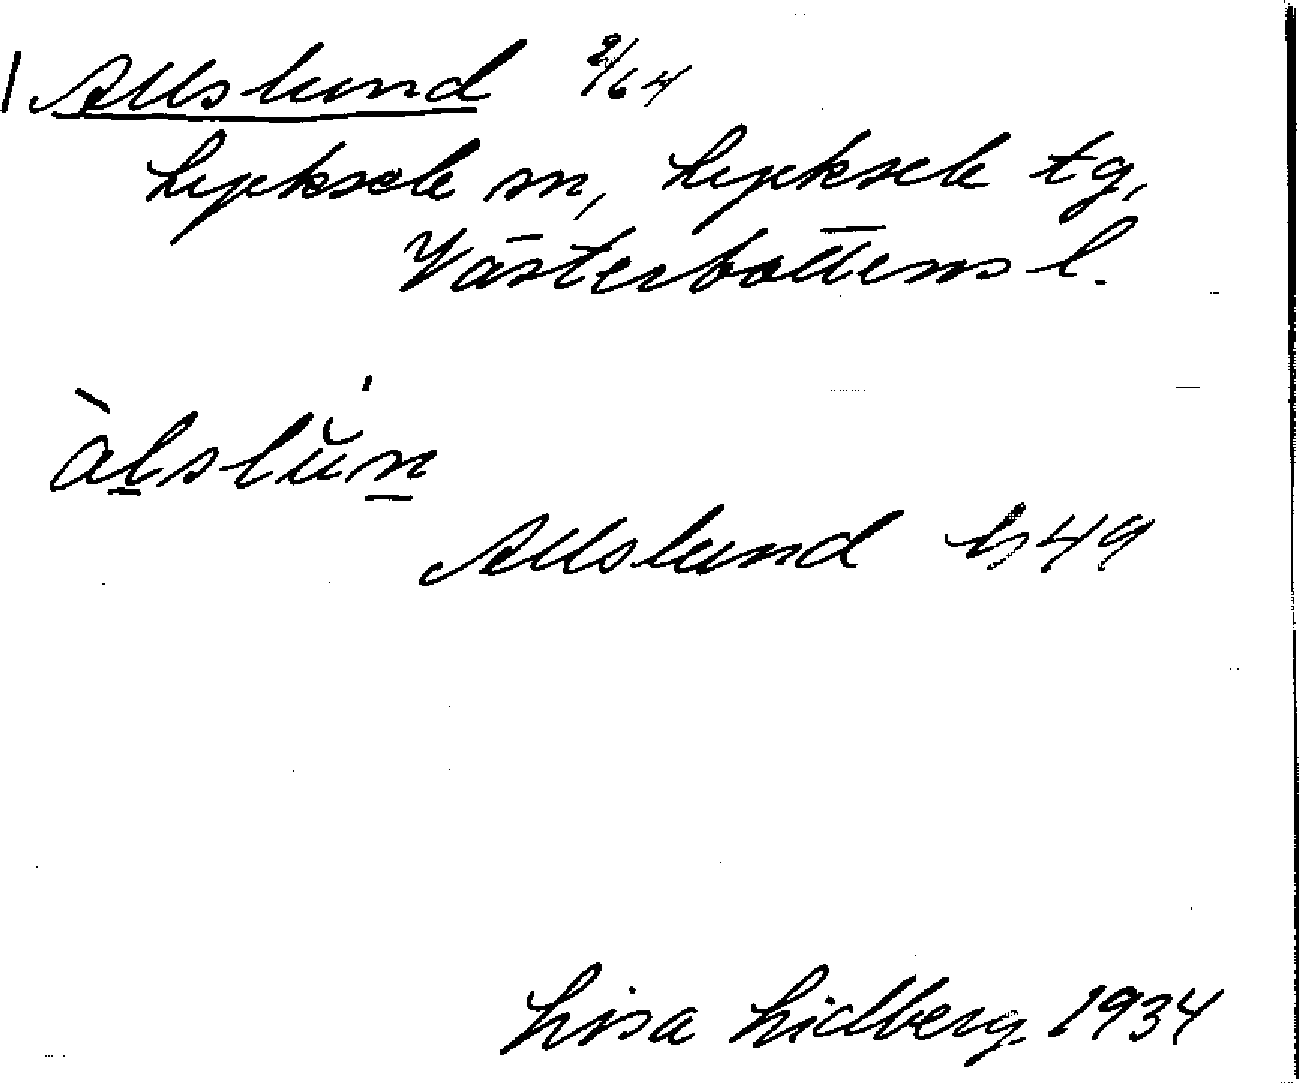 Allslund 2/64
Lycksele sn, Lycksele tg,
Västerbottens l.
àl̲slŭn̲
Allslund h49
Lisa Lidberg 1934